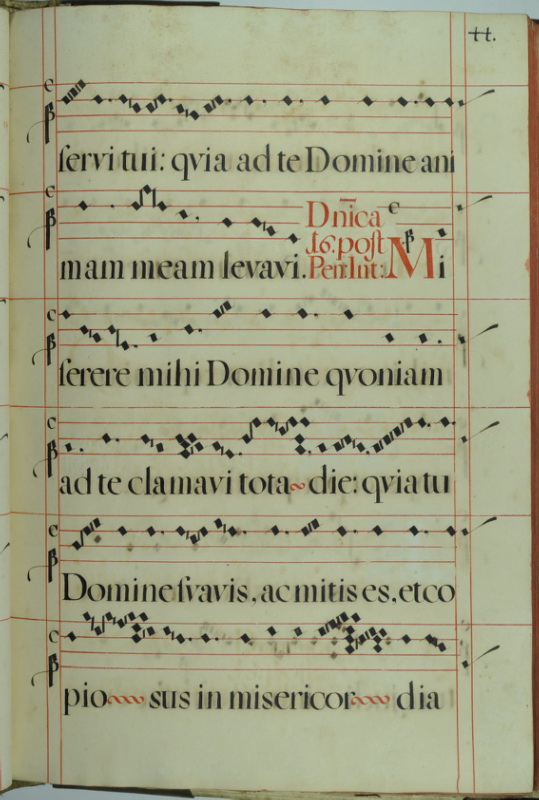 44.
servi tui: qvia ad te Domine ani
mam meam levavi.
Dnica
16. post
Pent. Int:
Mi
serere mihi Domine qvoniam
ad te clamavi tota die: qvia tu
Domine svavis, ac mitis es, et co
pio sus in misericor dia